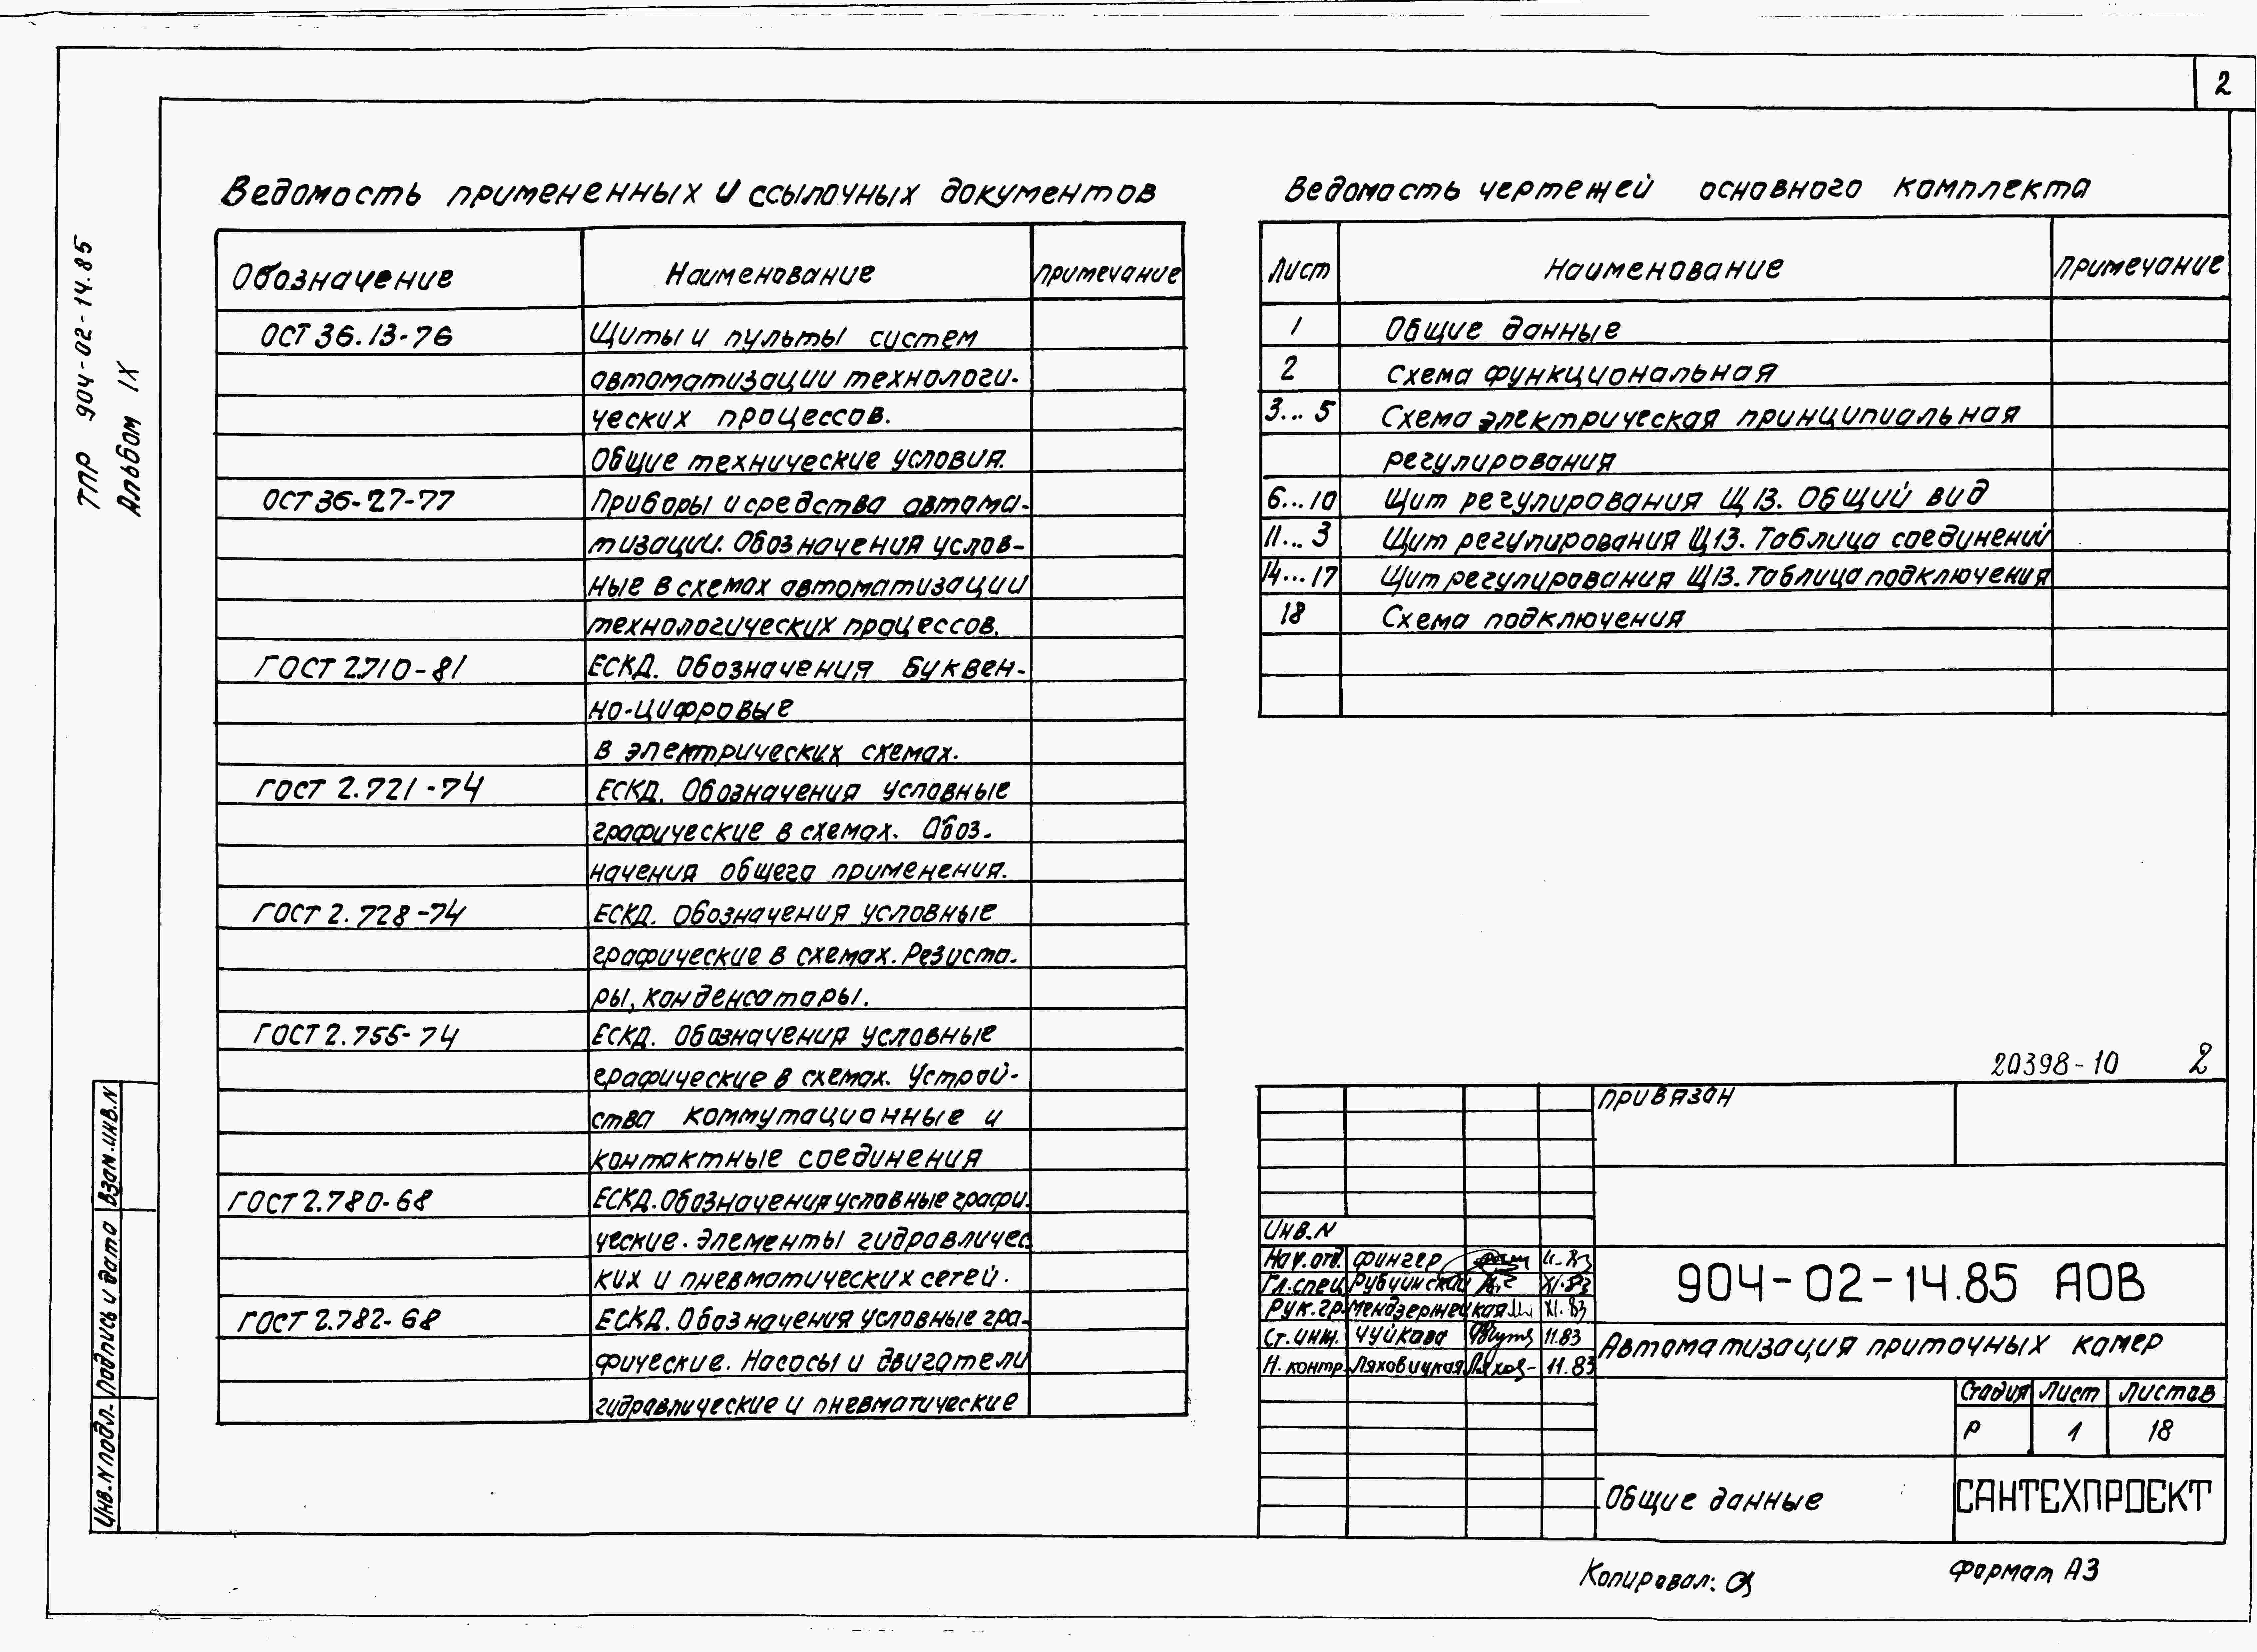 2
ТПР 904-02-14.85
Альбом IX
Ведомость примененных и ссылочных документов
Обозначение Наименование Примечание
ОСТ 36.13-76 Щиты и пульты систем
автоматизации технологи-
ческих процессов.
Общие технические условия.
ОСТ 36-27-77 Приборы и средства автома-
тизации. Обозначения услов-
ные в схемах автоматизации
технологических процессов.
ГОСТ 2.710-81 ЕСКД. Обозначения буквен-
но-цифровые
в электрических схемах.
ГОСТ 2.721-74 ЕСКД. Обозначения условные
графические в схемах. Обоз-
начения общего применения.
ГОСТ 2.728-74 ЕСКД. Обозначения условные
графические в схемах. Резисто-
ры, конденсаторы.
ГОСТ 2.755-74 ЕСКД. Обозначения условные
графические в схемах. Устрой-
ства коммутационные и
контактные соединения
ГОСТ 2.780-68 ЕСКД. Обозначения условные графи-
ческие. Элементы гидравличес
ких и пневматических сетей.
ГОСТ 2.782-68 ЕСКД. Обозначения условные гра-
фические. Насосы и двигатели
гидравлические и пневматические
Ведомость чертежей основного комплекта
Лист Наименование Примечание
1 Общие данные
2 Схема функциональная
3...5 Схема электрическая принципиальная
регулирования
6...10 Щит регулирования Щ13. Общий вид
11...3 Щит регулирования Щ13. Таблица соединений
14...17 Щит регулирования Щ13. Таблица подключения
18 Схема подключения
20398-10 2
Привязан
Инв.N
Нач.отд. Фингер 11-83
Гл.спец Рубчинский XI.83
Рук.гр. Мендзержецкая XI.83
Ст.инж. Чуйкова 11.83
Н.контр. Ляховицкая Ляхов- 11.83
904-02-14.85 АОВ
Автоматизация приточных камер
Стадия Лист Листов
Р 1 18
Общие данные
САНТЕХПРОЕКТ
Инв.N подл. Подпись и дата Взам.инв.N
Копировал:
Формат А3